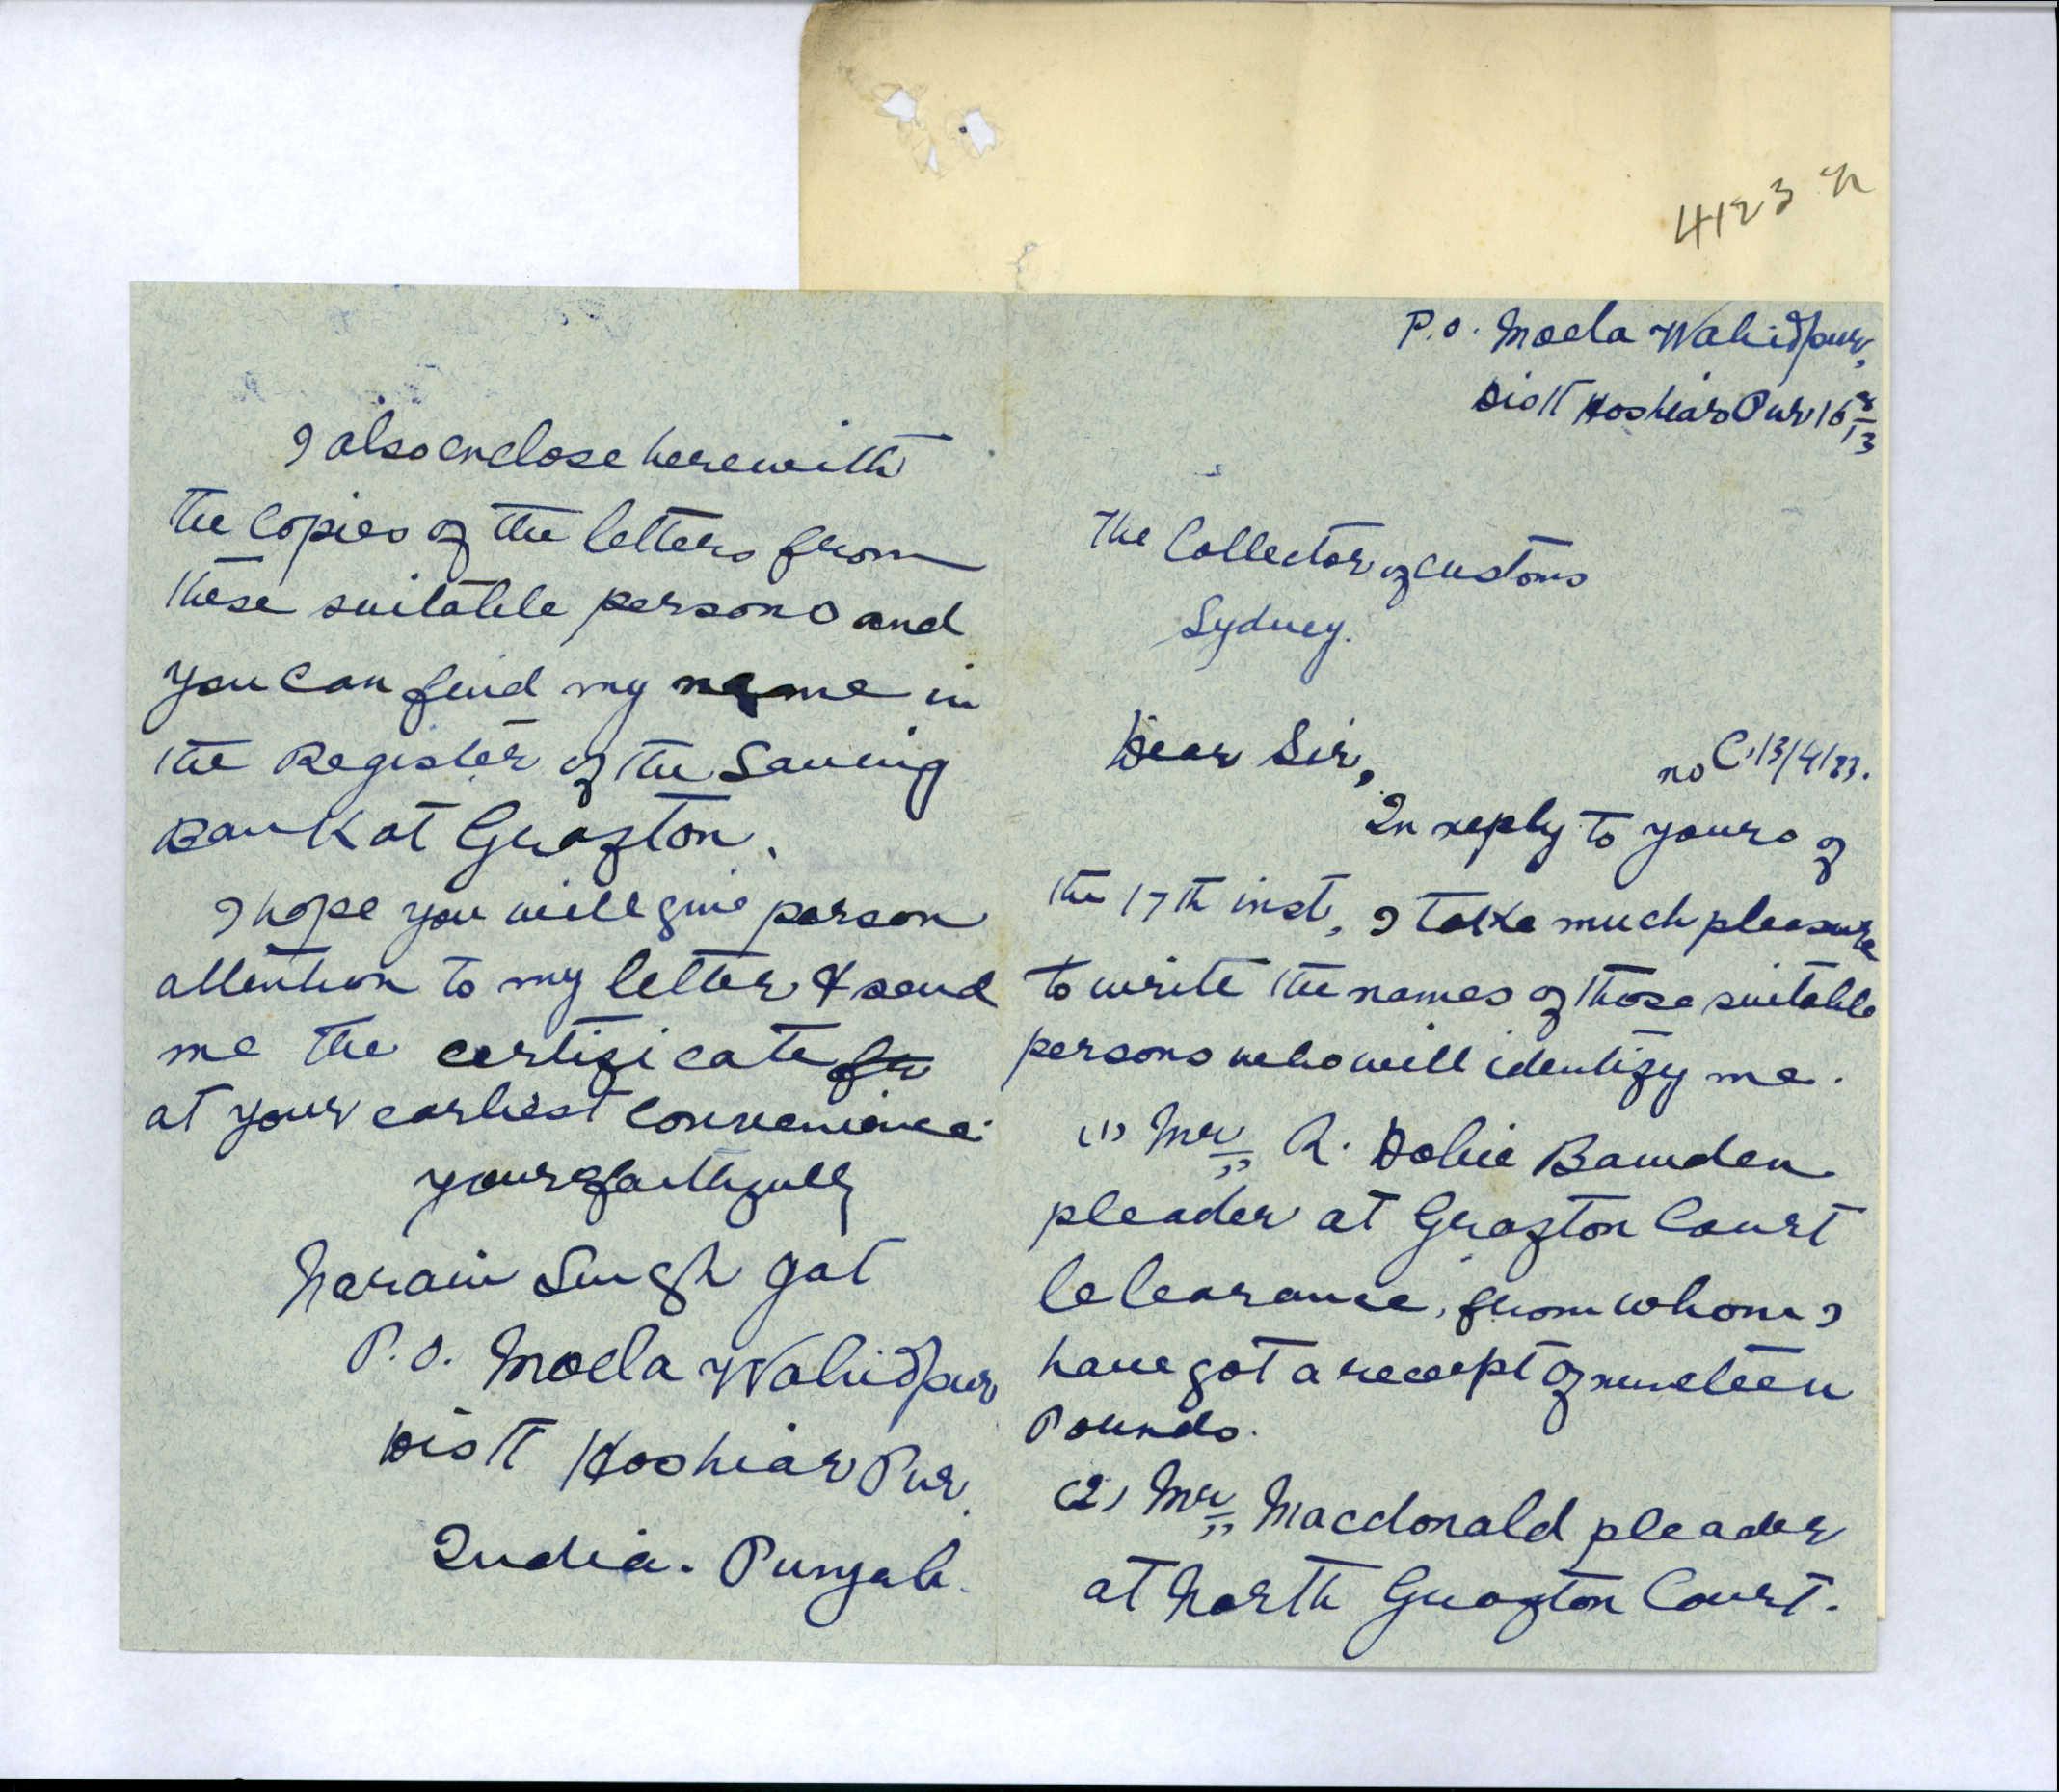 4123
P.O. Moela Wahidpur,
Distt Hoshiar Pur 16
The Collector of customs
Sydney.
Dear Sir,
no C.13/4133.
In reply to yours of
the 17th inst, I take much pleasure
to write the names of those suitable
persons who will identify me.
(1) Mr R. Dobie Bawden
pleader at Grafton Court
le learance, from whom I
have got a receept of nineteen
Pounds.
(2) Mr Macdonald pleader
at North Grafton Court.
I also enclose herewith
the copies of the letters from
these suitable persons and
you can find my name in
the Register of the Saving
Bank at Grafton.
I hope you will give person
attention to my letter & send
me the certificate
at your earliest convenience.
yours faithfully
Narain Singh Jat
P.O. Moela Wahidpur
Distt Hoshiar Pur.
India. Punjab.